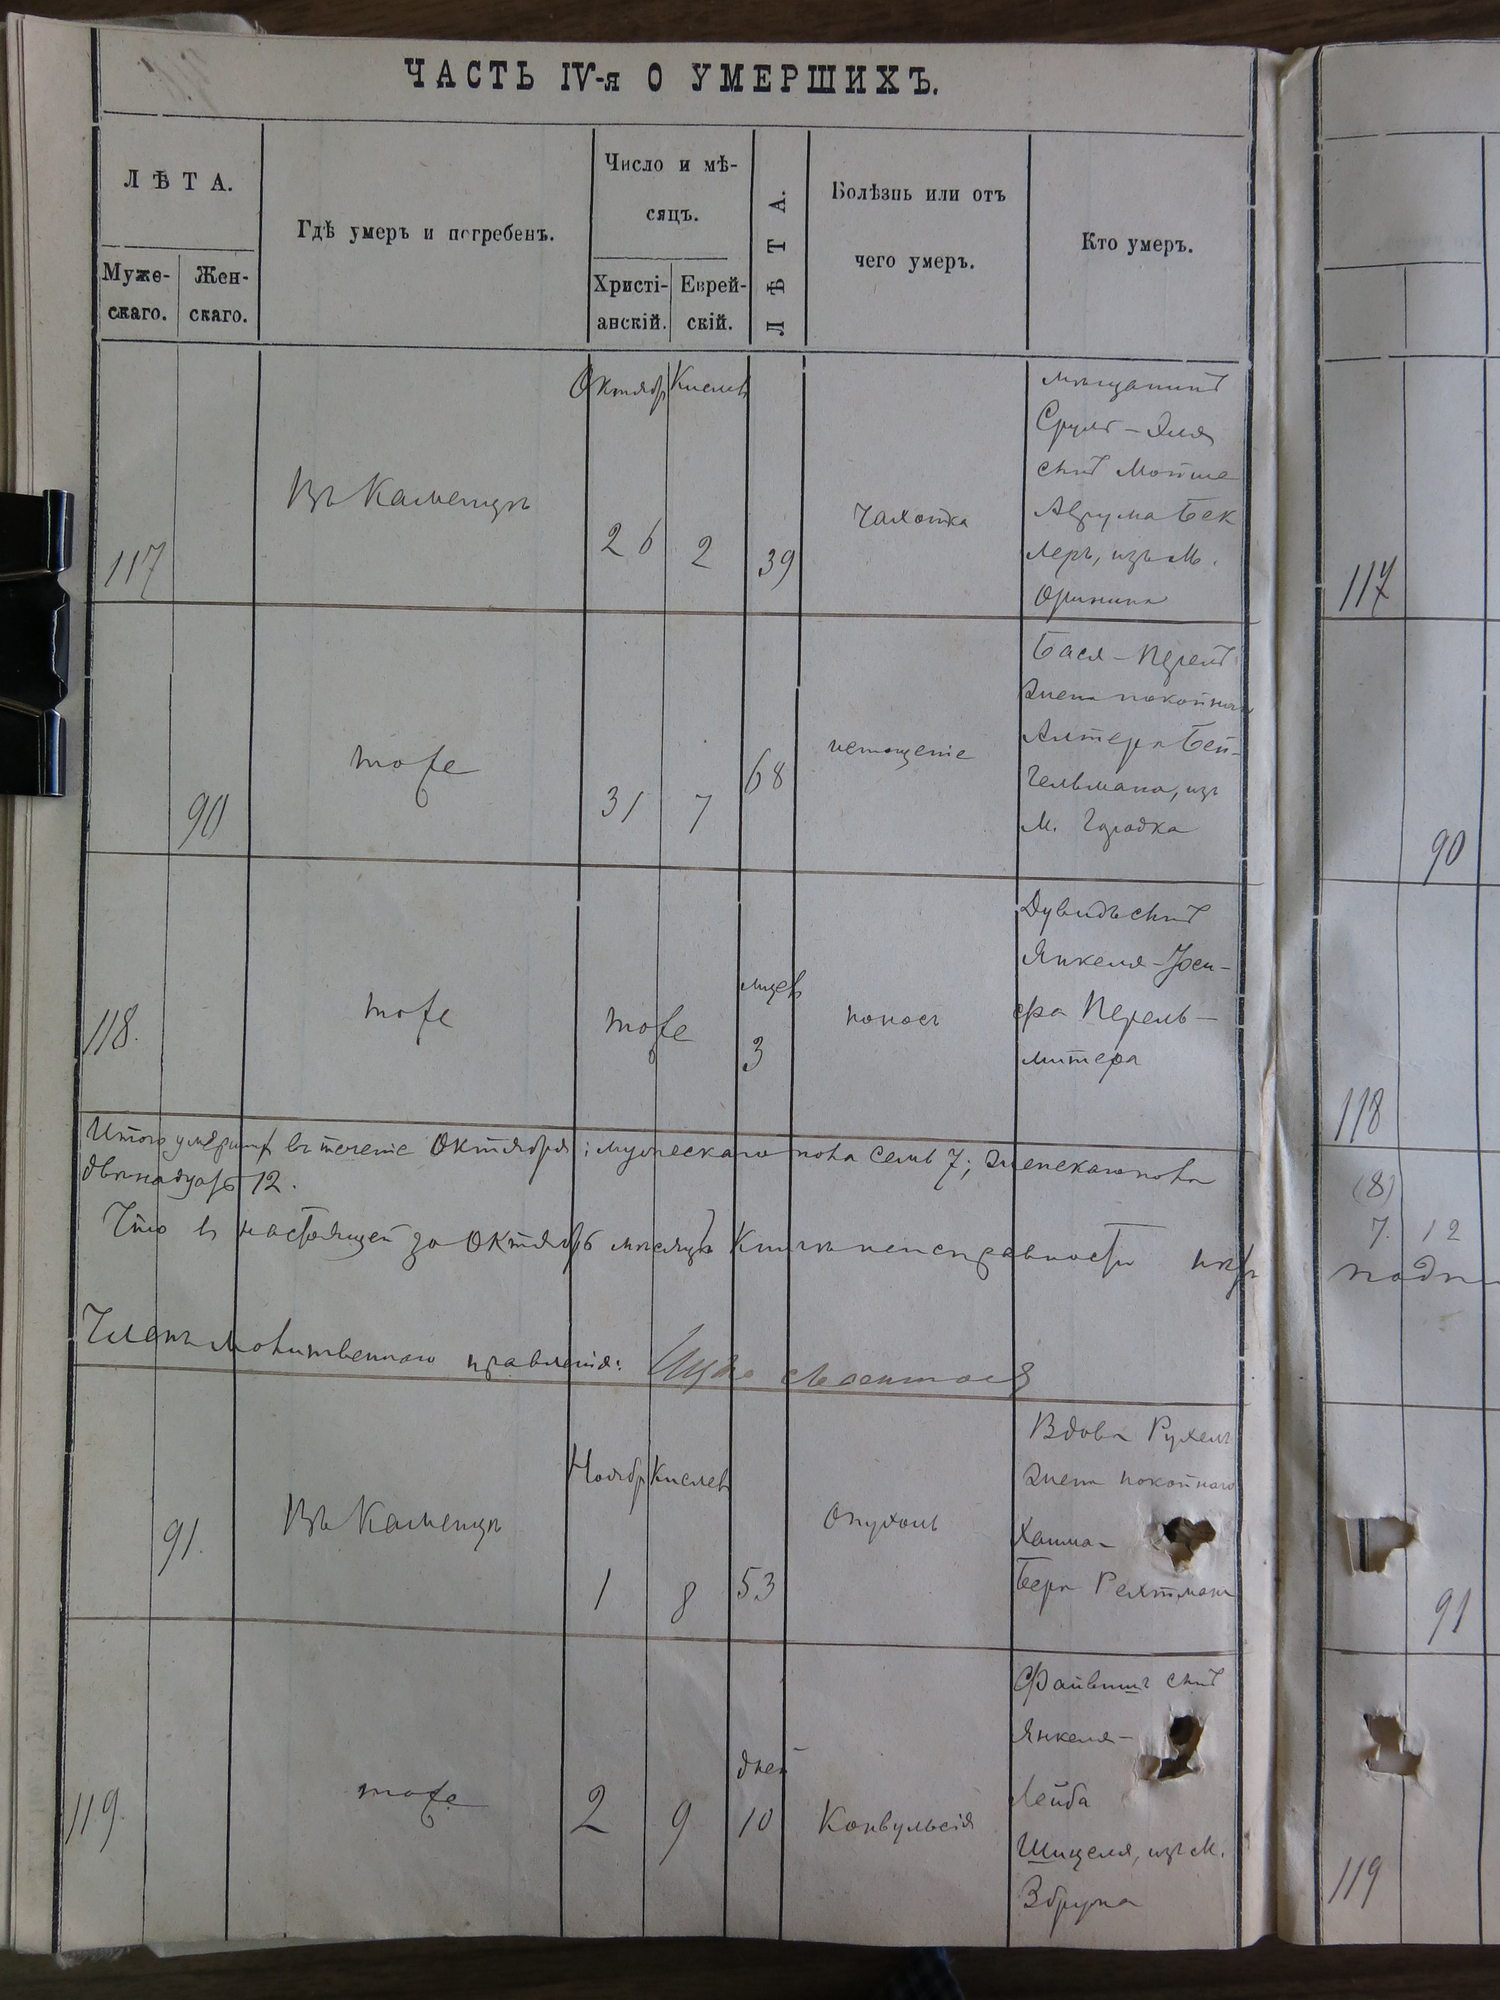 ЧАСТЬ IV-я О УМЕРШИХЪ.
ЛѢТА.
Муже-
скаго.
Жен-
скаго.
Гдѣ умеръ и погребенъ.
Число и мѣ-
сяцъ.
Христі-
анскій.
Еврей-
скій.
ЛѢТА.
Болѣзнь или отъ
чего умеръ.
Кто умеръ.
117
Въ Каменцѣ
Октябр
26
Кислев
2
39
Чахотка
мѣщанинъ
Сруль-Эля
сынъ Мошке
Аврума Бек
леръ, изъ м.
Оринина
117
90
тоже
31
7
68
истощеніе
Бася-Перель
жена покойнаго
Алтера Бен-
гельмана, изъ
м. Городка
90
118.
тоже
тоже
мѣсяцев
3
поносъ
Дувидъ сынъ
Янкеля-Іоси-
фа Перель-
митера
118
Итого умершихъ въ теченіе Октября: мужескаго пола семь 7; женскаго пола
двѣнадцать 12.
(8)
7. 12
Что въ настоящей за Октябрь мѣсяцъ Книгѣ неисправности нѣтъ
Членъ Молитвеннаго правленія:
91.
Въ Каменцѣ
Ноябр
1
Кислев
8
53
Опухоль
Вдова Рухель
жена покойнаго
Хаима-
Бера Рехтмана
91
119.
тоже
2
9
дней
10
Конвульсія
Файвишъ сынъ
Янкеля-
Лейба
Шицеля, изъ м.
Збружа
119